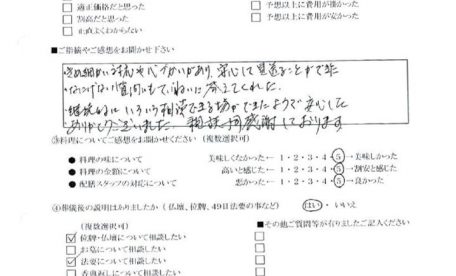 適正価格だと思った
割高だと思った
正直よくわからない
予想以上に費用が掛かった
予想以上に費用が安かった
■ご指摘やご感想をお聞かせ下さい
・きめ細かい 安心して見送ることができた
・ 質問にもていねいに答えてくれた。
・継続的にいろいろ相談できる場ができたようで安心した
ありがとうございました 感謝しております
③料理についてご意見をお聞かせください(複数選択可)
● 料理の味について 美味しくなかった← 1・2・3・4・5→美味しかった
● 料理の金額について 高いと感じた← 1・2・3・4・5→割安と感じた
● 配膳スタッフの対応について 悪かった← 1・2・3・4・5→良かった
④葬儀後の説明はありましたか(仏壇、位牌、49日法要の事など) はい・いいえ
(複数選択可) ■その他ご質問等が有りましたらご記入ください
位牌・仏壇について相談したい
お墓について相談したい
法要について相談したい
香典返しについて相談したい